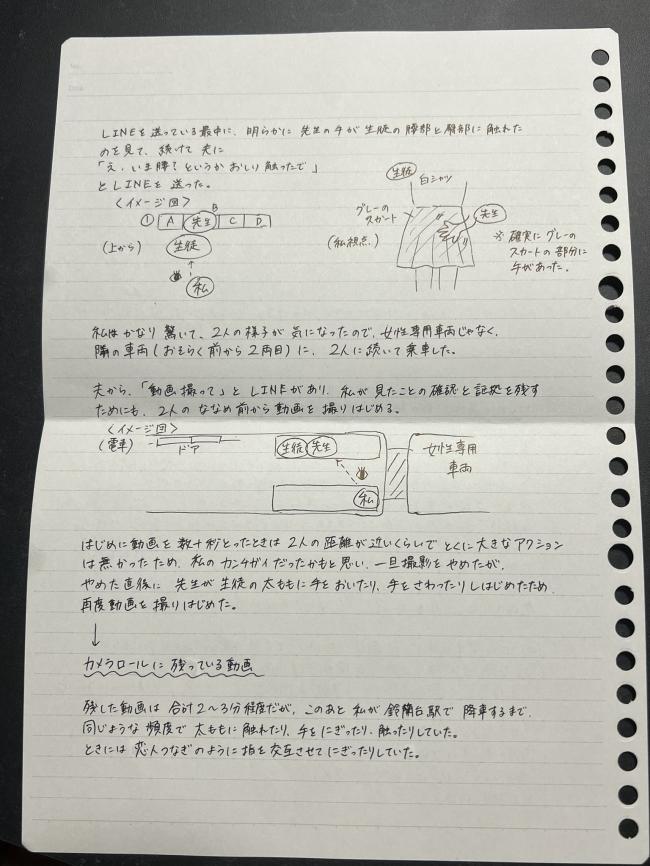 LINEを送っている最中に、明らかに先生の手が生徒の腰部と臀部に触れた
のを見て、続けて夫に
「え、いま腰？というかおしり触ったで」
とLINEを送った。
<イメージ図>
① A 先生 B C D
(上から)
生徒
私
生徒
白シャツ
グレーの
スカート
先生
(私視点)
※ 確実にグレーの
スカートの部分に
手があった。
私はかなり驚いて、2人の様子が気になったので、女性専用車両じゃなく、
隣の車両(おそらく前から2両目)に、2人に続いて乗車した。
夫から、「動画撮って」とLINEがあり、私が見たことの確認と証拠を残す
ためにも、2人のななめ前から動画を撮りはじめる。
<イメージ図>
(電車)
ドア
生徒 先生
私
女性専用
車両
はじめに動画を数十秒とったときは2人の距離が近いくらいでとくに大きなアクション
は無かったため、私のカンチガイだったかもと思い、一旦撮影をやめたが、
やめた直後に先生が生徒の太ももに手をおいたり、手をさわったりしはじめたため
再度動画を撮りはじめた。
↓
カメラロールに残っている動画
残した動画は合計2〜3分程度だが、このあと私が鈴蘭台駅で降車するまで、
同じような頻度で太ももに触れたり、手をにぎったり、触ったりしていた。
ときには恋人つなぎのように指を交互させてにぎったりしていた。